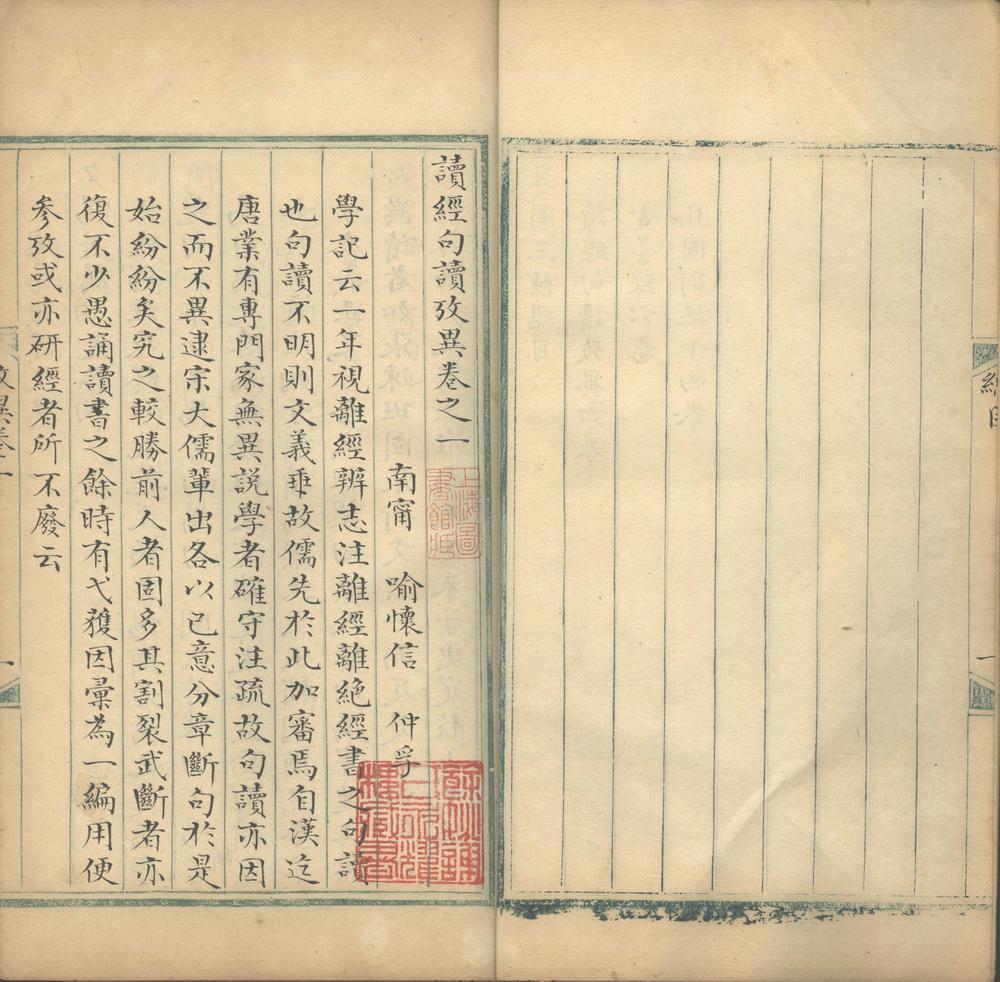 讀經句讀攷異卷之一
南甯　喻懷信　仲孚
學記云一年視離經辨志注離經離絕經書之句讀
也句讀不明則文義乖故儒先於此加審焉自漢迄
唐業有專門家無異説學者確守注疏故句讀亦因
之而不異逮宗大儒輩出各以己意分章斷句於是
始紛紛矣究之較勝前人者固多其割裂武斷者亦
復不少愚誦讀書之餘時有弋獲因彙為一編用便
參攷或亦研經者所不廢云
上海圖
書館藏